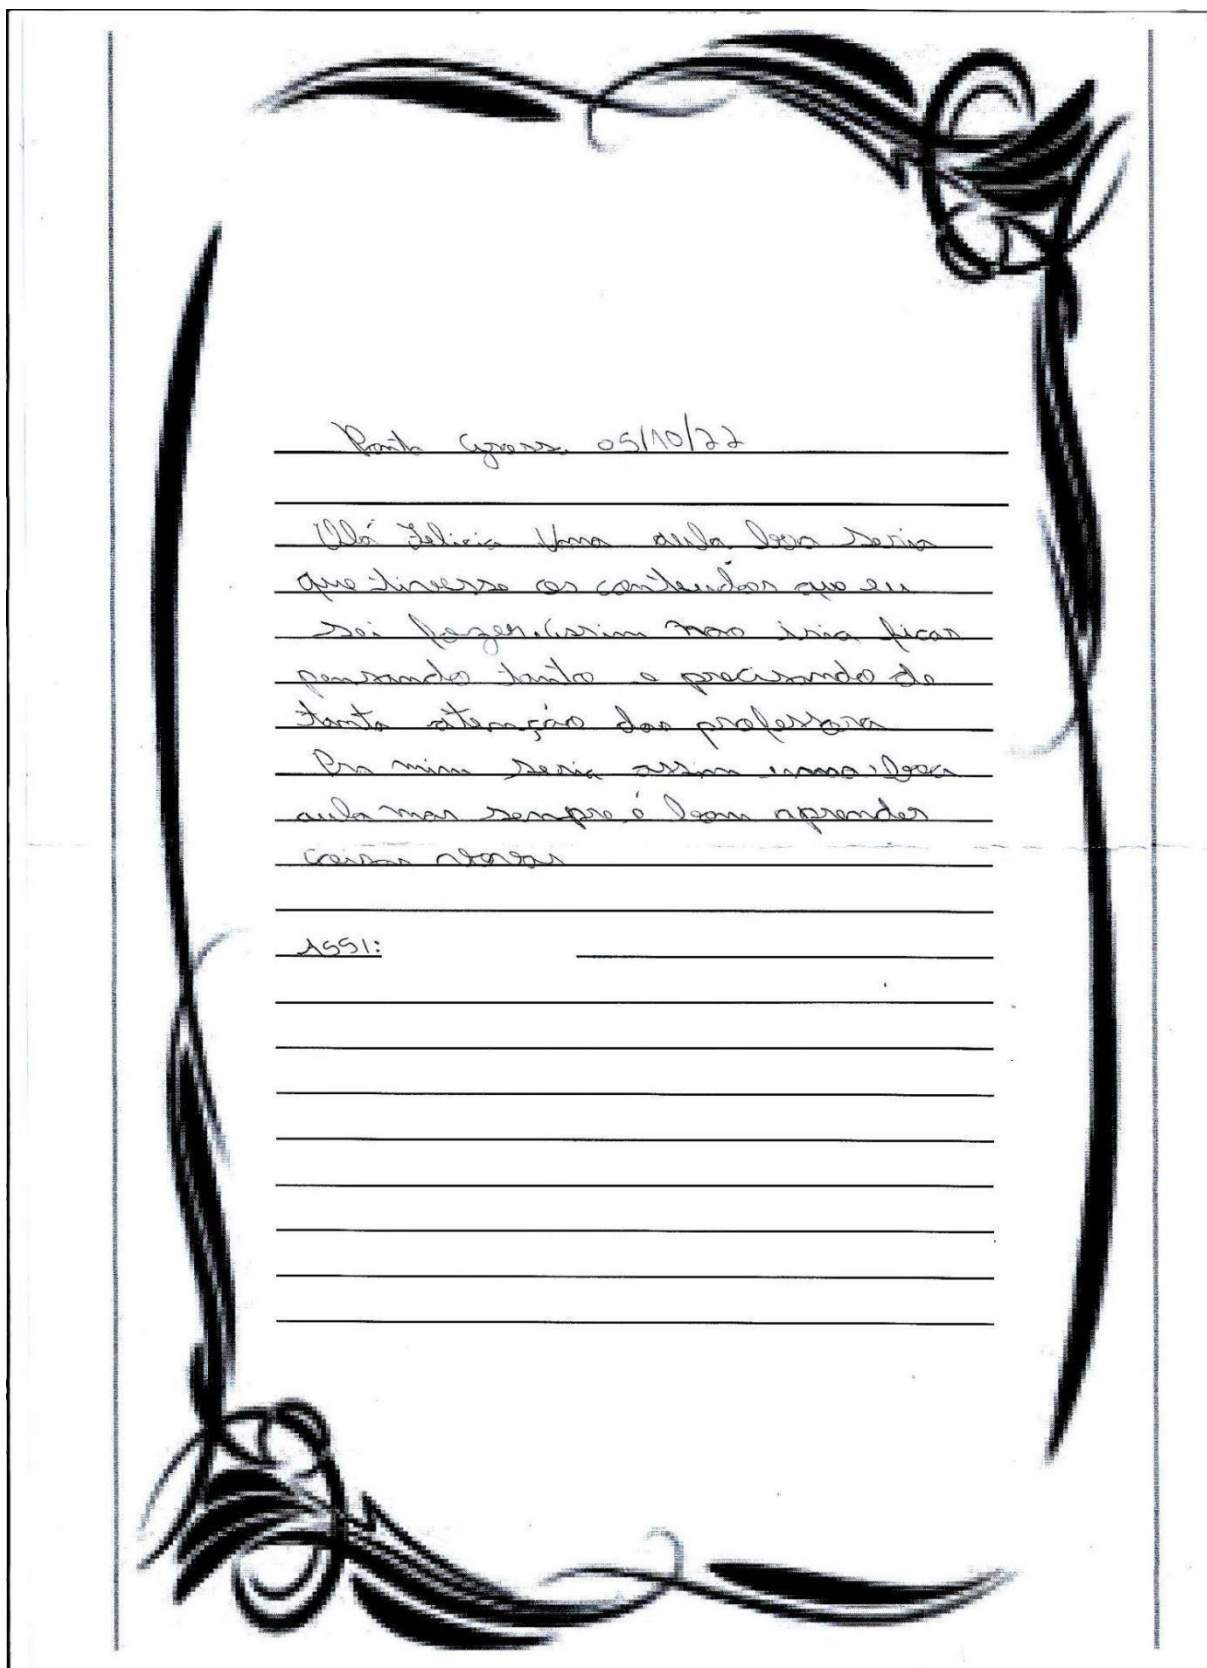 Ponta Grossa 05/10/22
Olá Felicia Uma aula boa seria
que tivesse os conteudos que eu
sei fazer. assim não iria ficar
pensando tanto e precisando de
tanta atenção das professora
Pra mim seria assim uma boa
aula mas sempre é bom aprender
coisas novas
ASSI: